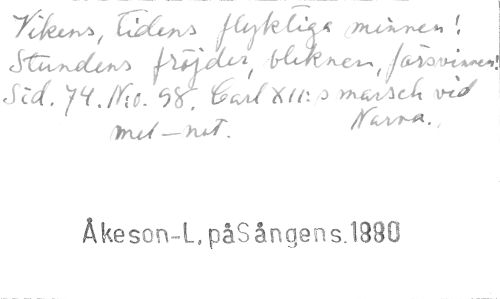 Vikens, tidens flyktliga minnen!
Stundens fröjder, blekner, försvinnen!
Sid. 74. N:o. 98. Carl XII:s marsch vid
mel-not. Narva.
Åkeson-L, påSångens.1880